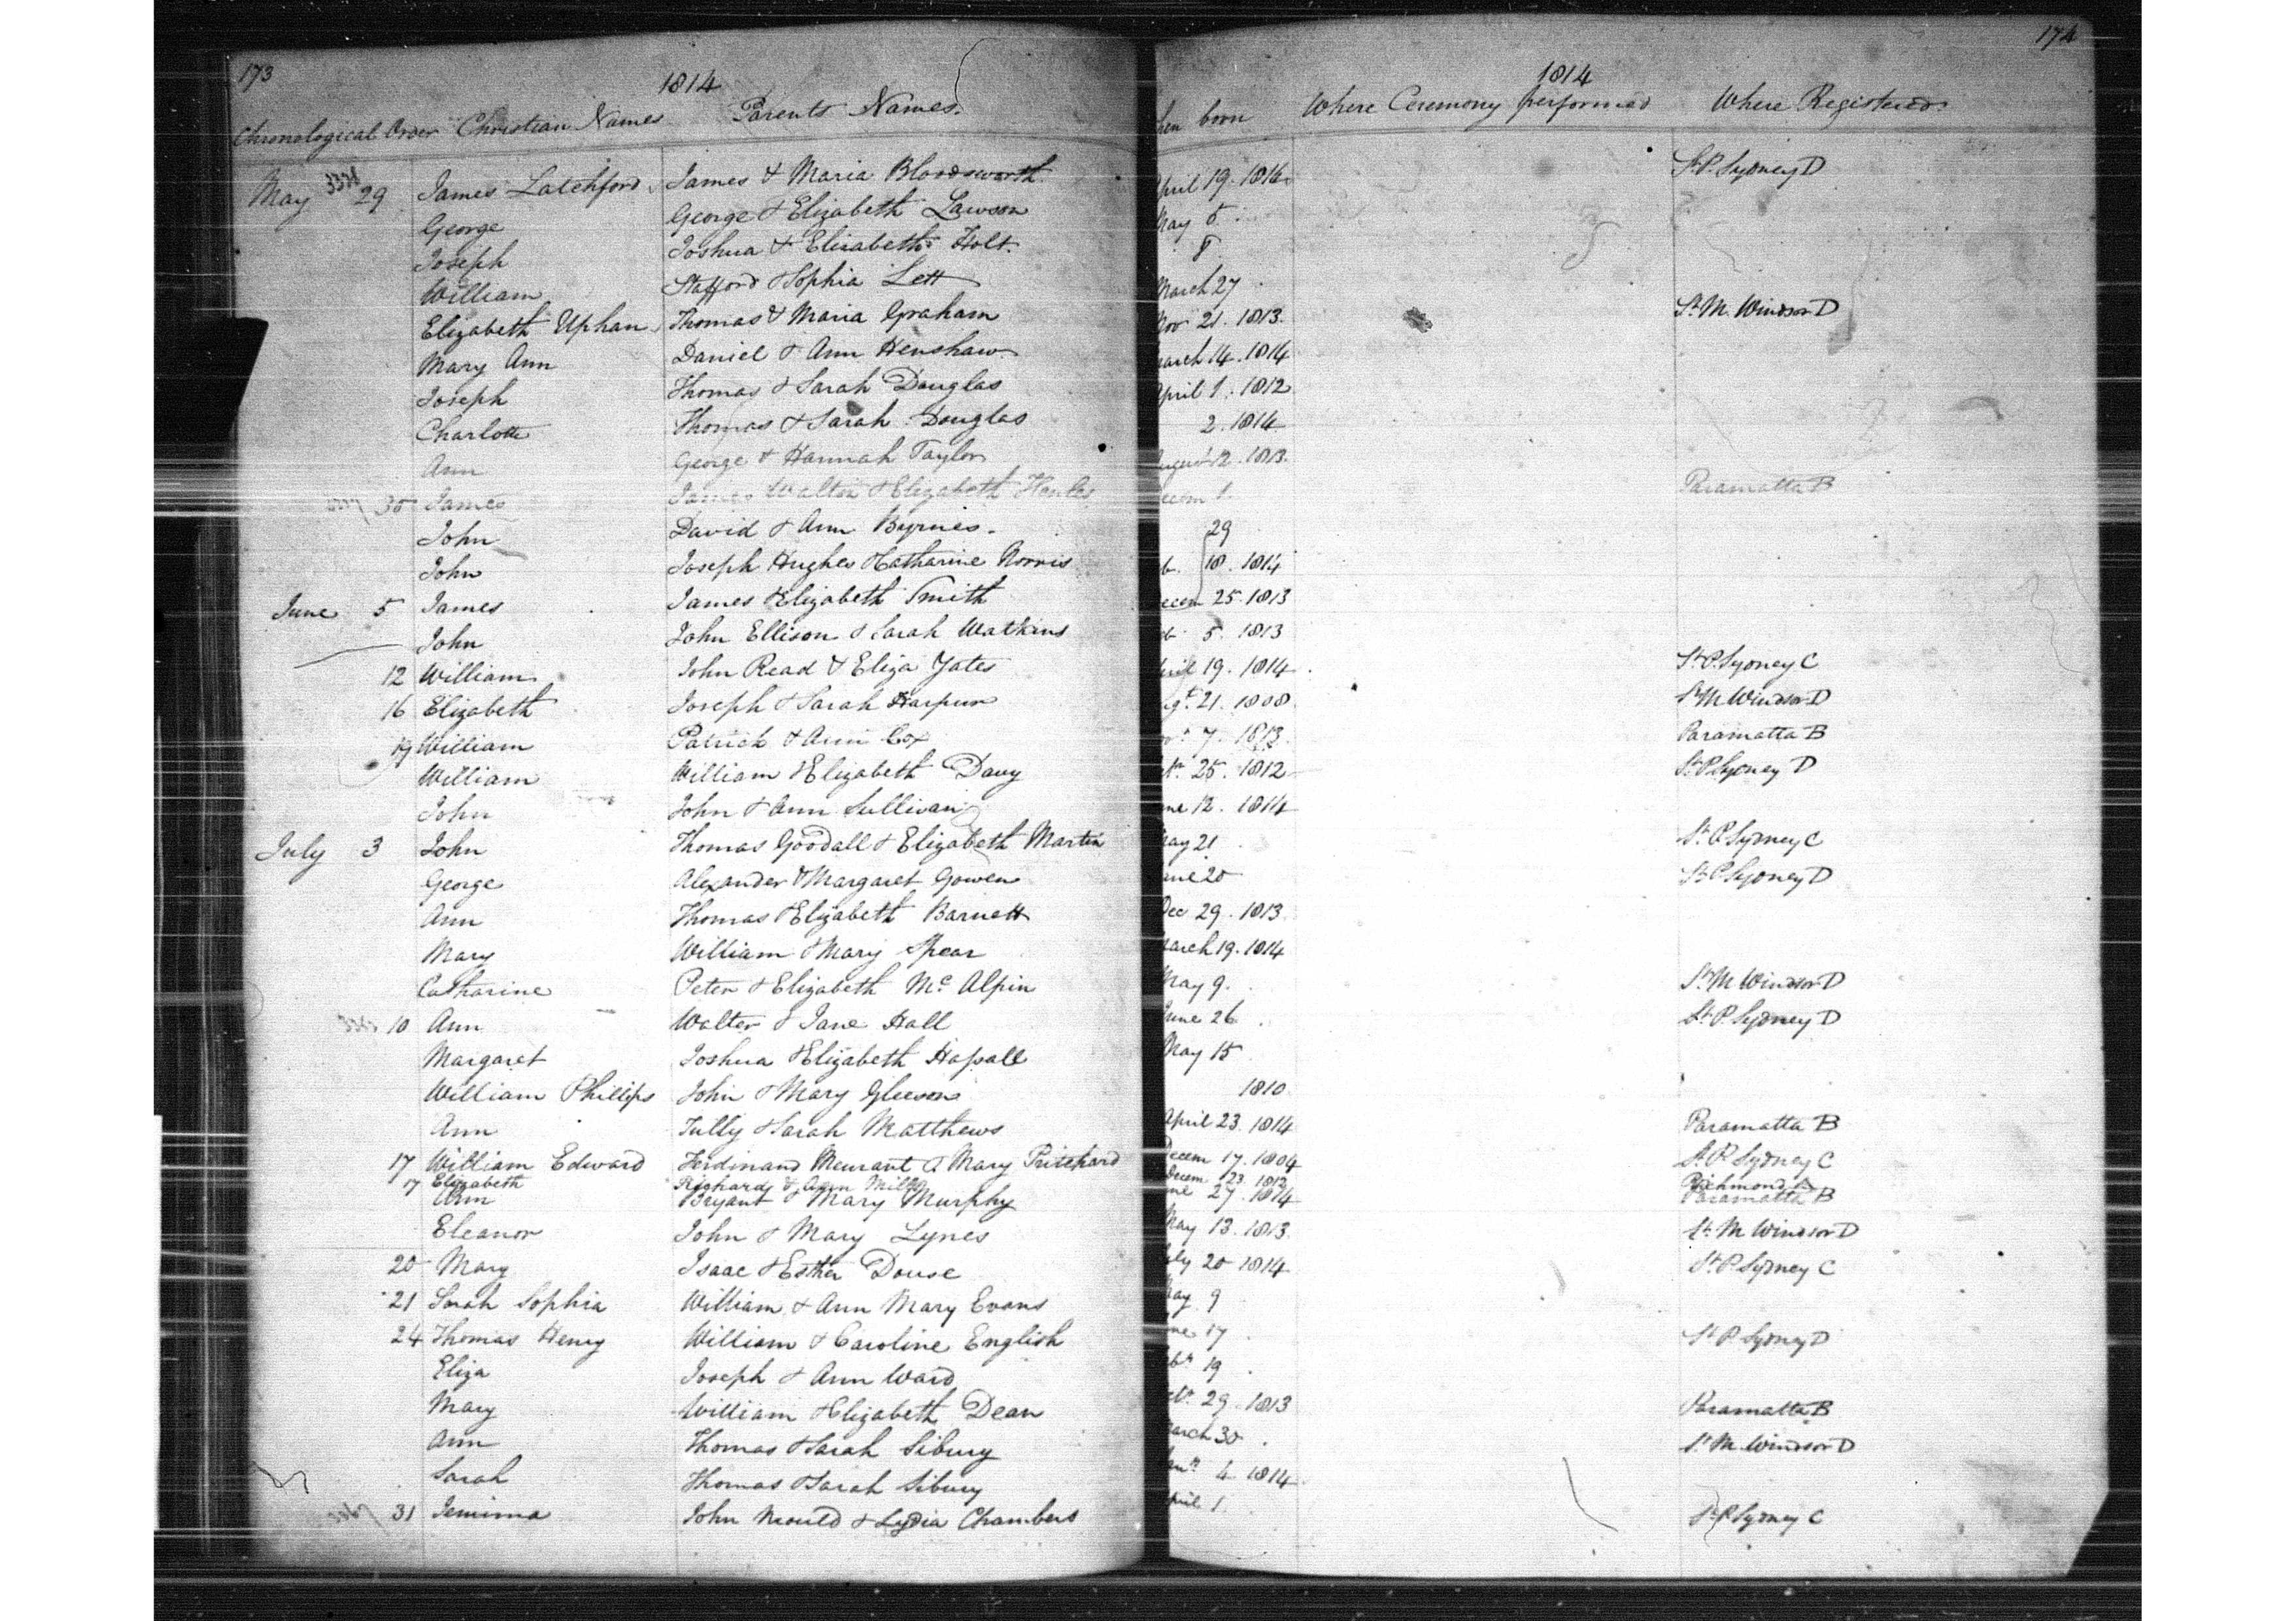 173
1814
Chronological Order Christian Names Parents Names.
May 29 James Latchford James & Maria Bloodsworth
George George & Elizabeth Lawson
Joseph Joshua & Elizabeth Holt
William Stafford & Sophia Lett
Elizabeth Uphan Thomas & Maria Graham
Mary Ann Daniel & Ann Henshaw
Joseph Thomas & Sarah Douglas
Charlotte Thomas & Sarah Douglas
Ann George & Hannah Taylor
30 James James Walton & Elizabeth
John David & Ann Byrnes
John Joseph Hughes & Catharine Norris
June 5 James James & Elizabeth Smith
John John Ellison & Sarah Watkins
12 William John Read & Eliza Yates
16 Elizabeth Joseph & Sarah Harpur
19 William Patrick & Ann Cox
William William & Elizabeth Davy
John John & Ann Sullivan
July 3 John Thomas Goodall & Elizabeth Martin
George Alexander & Margaret Gowen
Ann Thomas & Elizabeth Barnett
Mary William & Mary Spear
Catharine Peter & Elizabeth Mc Alpin
10 Ann Walter & Jane Hall
Margaret Joshua & Elizabeth
William Phillips John & Mary Gleeson
Ann Tully & Sarah Matthews
17 William Edward Ferdinand Meurant & Mary Pritchard
17 Elizabeth Richard & Ann Mills
Ann Bryant & Mary Murphy
Eleanor John & Mary Lynes
20 Mary Isaac & Esther Douse
21 Sarah Sophia William & Ann Mary Evans
24 Thomas Henry William & Caroline English
Eliza Joseph & Ann Ward
Mary William & Elizabeth Dean
Ann Thomas & Sarah Sibury
Sarah Thomas & Sarah Sibury
31 Jemima John Mould & Lydia Chambers
174
1814
hen born Where Ceremony performed Where Registered
pril 19. 1814 St. P. Sydney D
May 5
8
March 27
Nov 21. 1813. St. M. Windsor D
arch 14. 1814
pril 1. 1812
2. 1814
ugust 12. 1813.
ecem 1. Paramatta B
29
b. 18. 1814
ecem 25. 1813
b. 5. 1813
ril 19. 1814 St. P. Sydney C
g.t 21. 1808 St. M. Windsor D
7. 1813. Paramatta B
25. 1812 St. P. Sydney D
ne 12. 1814
ay 21 St. P. Sydney C
une 20 St. P. Sydney D
Dec 29. 1813
arch 19. 1814
May 9. St. M. Windsor D
June 26 St. P. Sydney D
May 15
1810.
April 23. 1814 Paramatta B
Decem 17. 1804 St. P. Sydney C
Decem 23. 1812 Richmond A
ne 27. 1814 Paramatta B
May 13. 1813. St. M. Windsor D
uly 20 1814 St. P. Sydney C
ay 9
ne 17 St. P. Sydney D
19
29. 1813 Paramatta B
arch 30 St. M. Windsor D
4 1814
pril 1. St. P. Sydney C